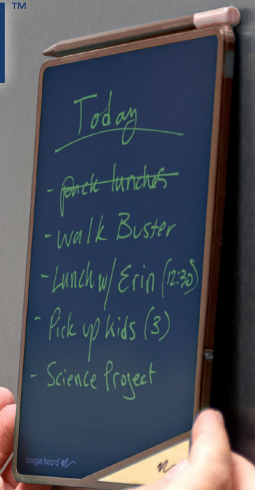 TM
Today
- pack lunches
- walk Buster
- Lunch w/ Erin (12:30)
- Pick up kids (3)
- Science Project
boogie board